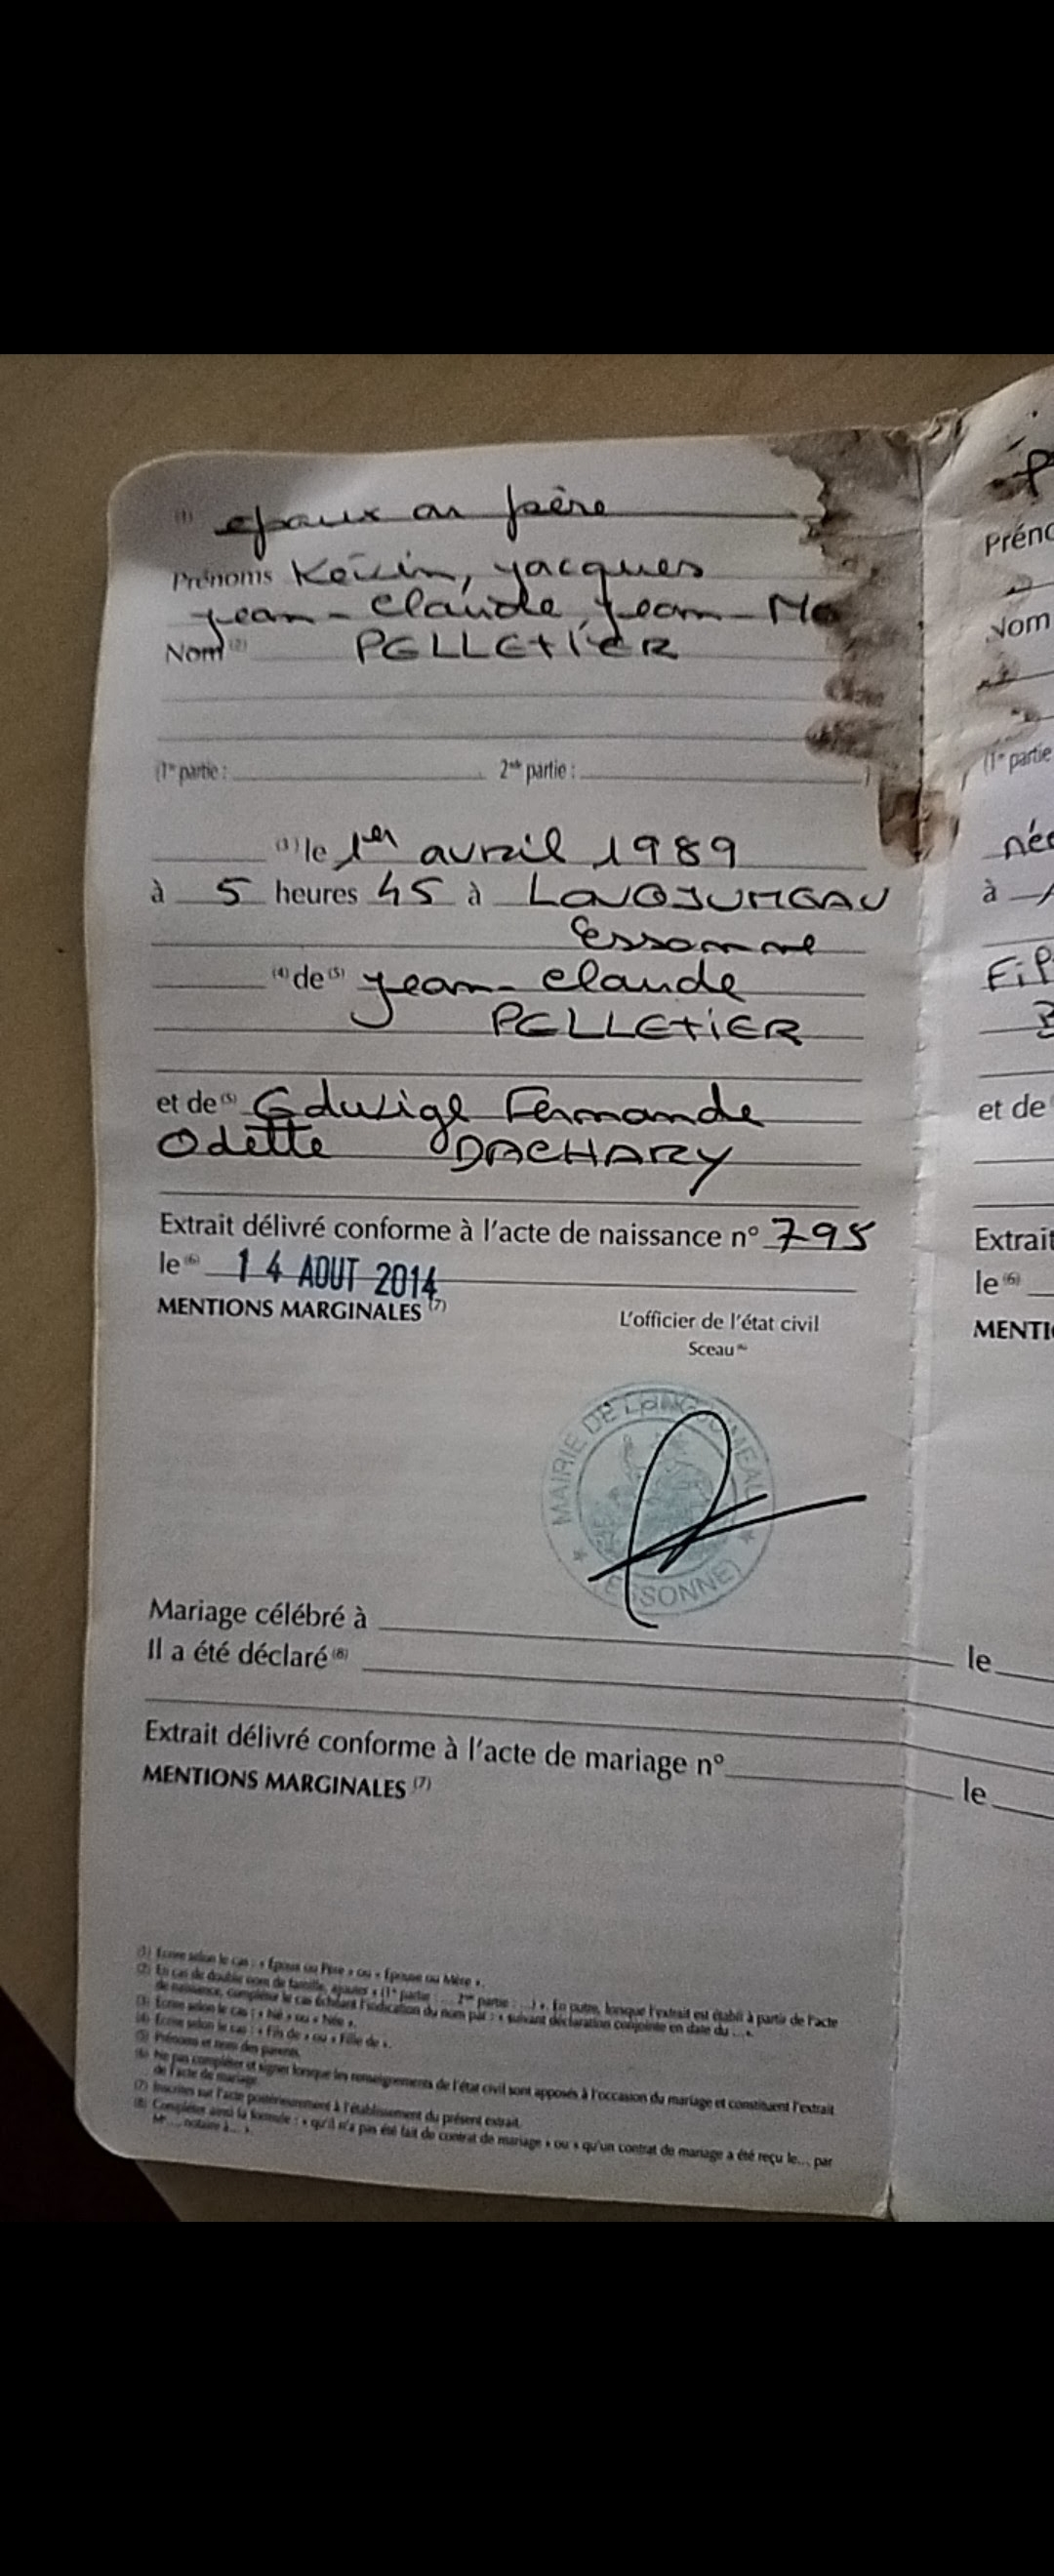 (1) époux ou père
Prénoms Kévin, Jacques
Jean-Claude, Jean-Ma
Nom (2) PELLETIER
(1re partie : 2nde partie : )
(3) le 1er avril 1989
à 5 heures 45 à LONGJUMEAU
Essonne
(4) de (5) Jean-Claude
PELLETIER
et de (5) Edwige Fernande
Odette DACHARY
Extrait délivré conforme à l'acte de naissance n° 795
le (6) 14 AOUT 2014
MENTIONS MARGINALES (7)
L'officier de l'état civil
Sceau (6)
MAIRIE DE LONGJUMEAU
(ESSONNE)
Mariage célébré à
Il a été déclaré (8)
Extrait délivré conforme à l'acte de mariage n°
MENTIONS MARGINALES (7)
(1) Écrire selon le cas : « Époux ou Père » ou « Épouse ou Mère ».
(2) En cas de double nom de famille, ajouter « (1re partie : ... 2nde partie : ...) ». En outre, lorsque l'extrait est établi à partir de l'acte
de naissance, compléter le cas échéant l'indication du nom par : « suivant déclaration conjointe en date du ... ».
(3) Écrire selon le cas : « Né » ou « Née ».
(4) Écrire selon le cas : « Fils de » ou « Fille de ».
(5) Prénoms et nom des parents.
(6) Ne pas compléter et signer lorsque les renseignements de l'état civil sont apposés à l'occasion du mariage et constituent l'extrait
de l'acte de mariage.
(7) Inscrites sur l'acte postérieurement à l'établissement du présent extrait.
(8) Compléter ainsi la formule : « qu'il n'a pas été fait de contrat de mariage » ou « qu'un contrat de mariage a été reçu le... par
Me ..., notaire à... ».
P
Préno
Nom
(1re partie
née
à
et de
Extrait
le (6)
MENTI
le
le